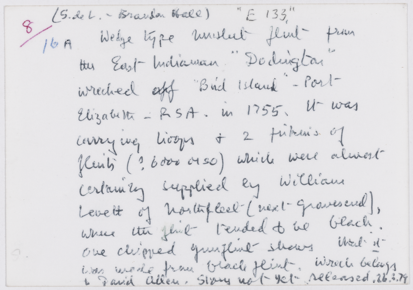 (S. de L. - Brandon Hall) "E 133"
8
16 A Wedge type musket flint from
the East Indiaman "Dodington"
wrecked off "Bird Island" - Port
Elizabeth - RSA. in 1755. It was
carrying troops & 2 firkins of
flints (? 6000 or so) which were almost
certainly supplied by William
Levett of Northfleet (next Gravesend),
where the flint tended to be black.
One chipped gunflint shows that it
was made from black flint. Wreck belongs
to David Allen. Story not yet released.